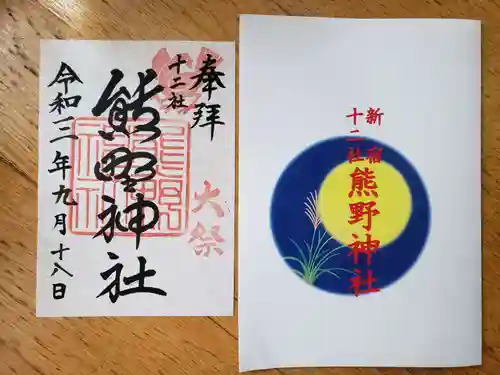 奉拝
十二社
熊野神社
大祭
令和二年九月十八日
新宿
十二社
熊野神社